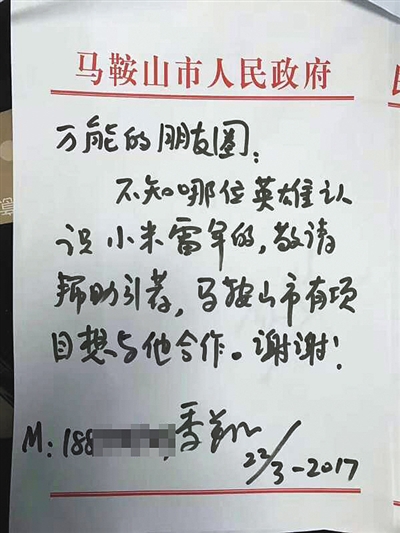 马鞍山市人民政府
万能的朋友圈:
不知哪位英雄认
识小米雷军的,敬请
帮助引荐,马鞍山市有项
目想与他合作。谢谢!
M:188 季翔
22/3-2017